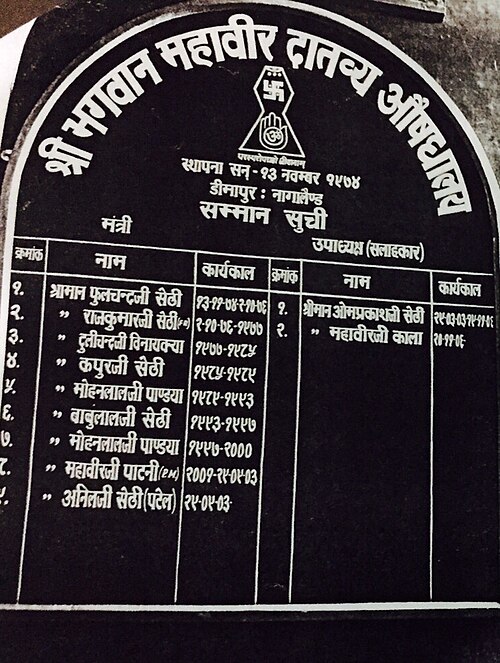 श्री भगवान महावीर दातव्य औषधालय
परस्परोपग्रहो जीवानाम्
स्थापना सन् - १३ नवम्बर १९७४
डीमापुर : नागालैण्ड
सम्मान सुची
मंत्री
उपाध्यक्ष (सलाहकार)
क्रमांक नाम कार्यकाल क्रमांक नाम कार्यकाल
१. श्रीमान फुलचन्दजी सेठी १३-११-७४-२-१०-७६
२. ” राजकुमारजी सेठी २-१०-७६-१९७७
३. ” दुलीचन्दजी विनायक्या १९७७-१९८५
४. ” कपुरजी सेठी १९८५-१९८९
५. ” मोहनलालजी पाण्डया १९८९-१९९३
६. ” बाबुलालजी सेठी १९९३-१९९७
७. ” मोहनलालजी पाण्डया १९९७-२०००
८. ” महावीरजी पाटनी २००१-२५-०५-०३
९. ” अनिलजी सेठी (पटेल) २५-०५-०३-
१. श्रीमान ओमप्रकाशजी सेठी
२. ” महावीरजी काला